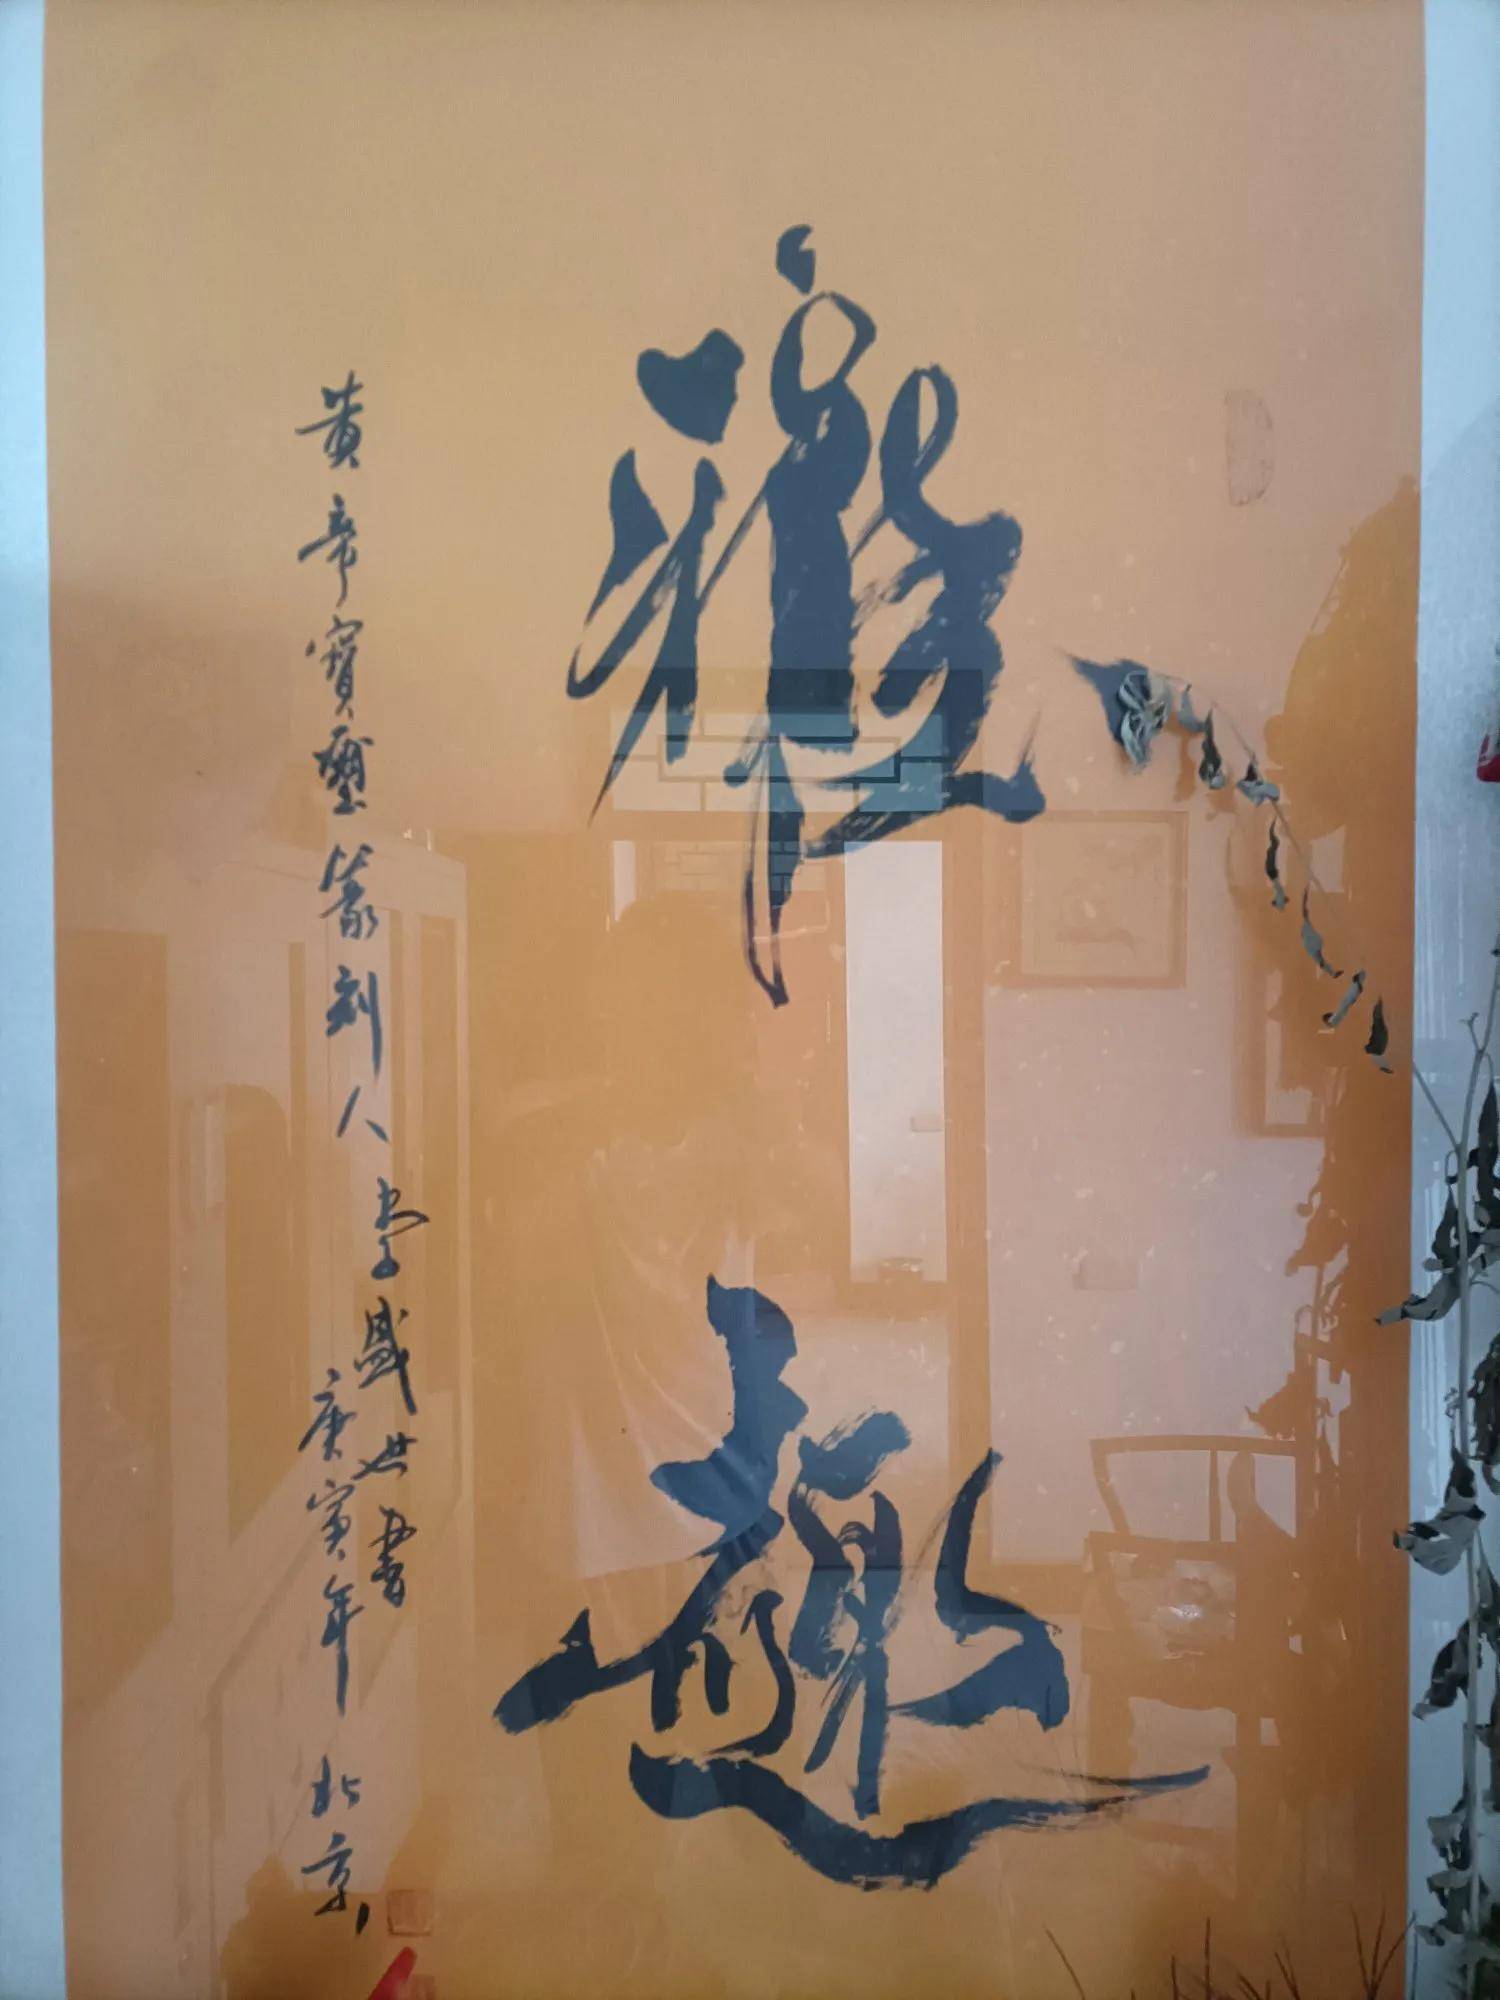 雅趣
黄帝宝玺篆刻人李盛世書
庚寅年北京